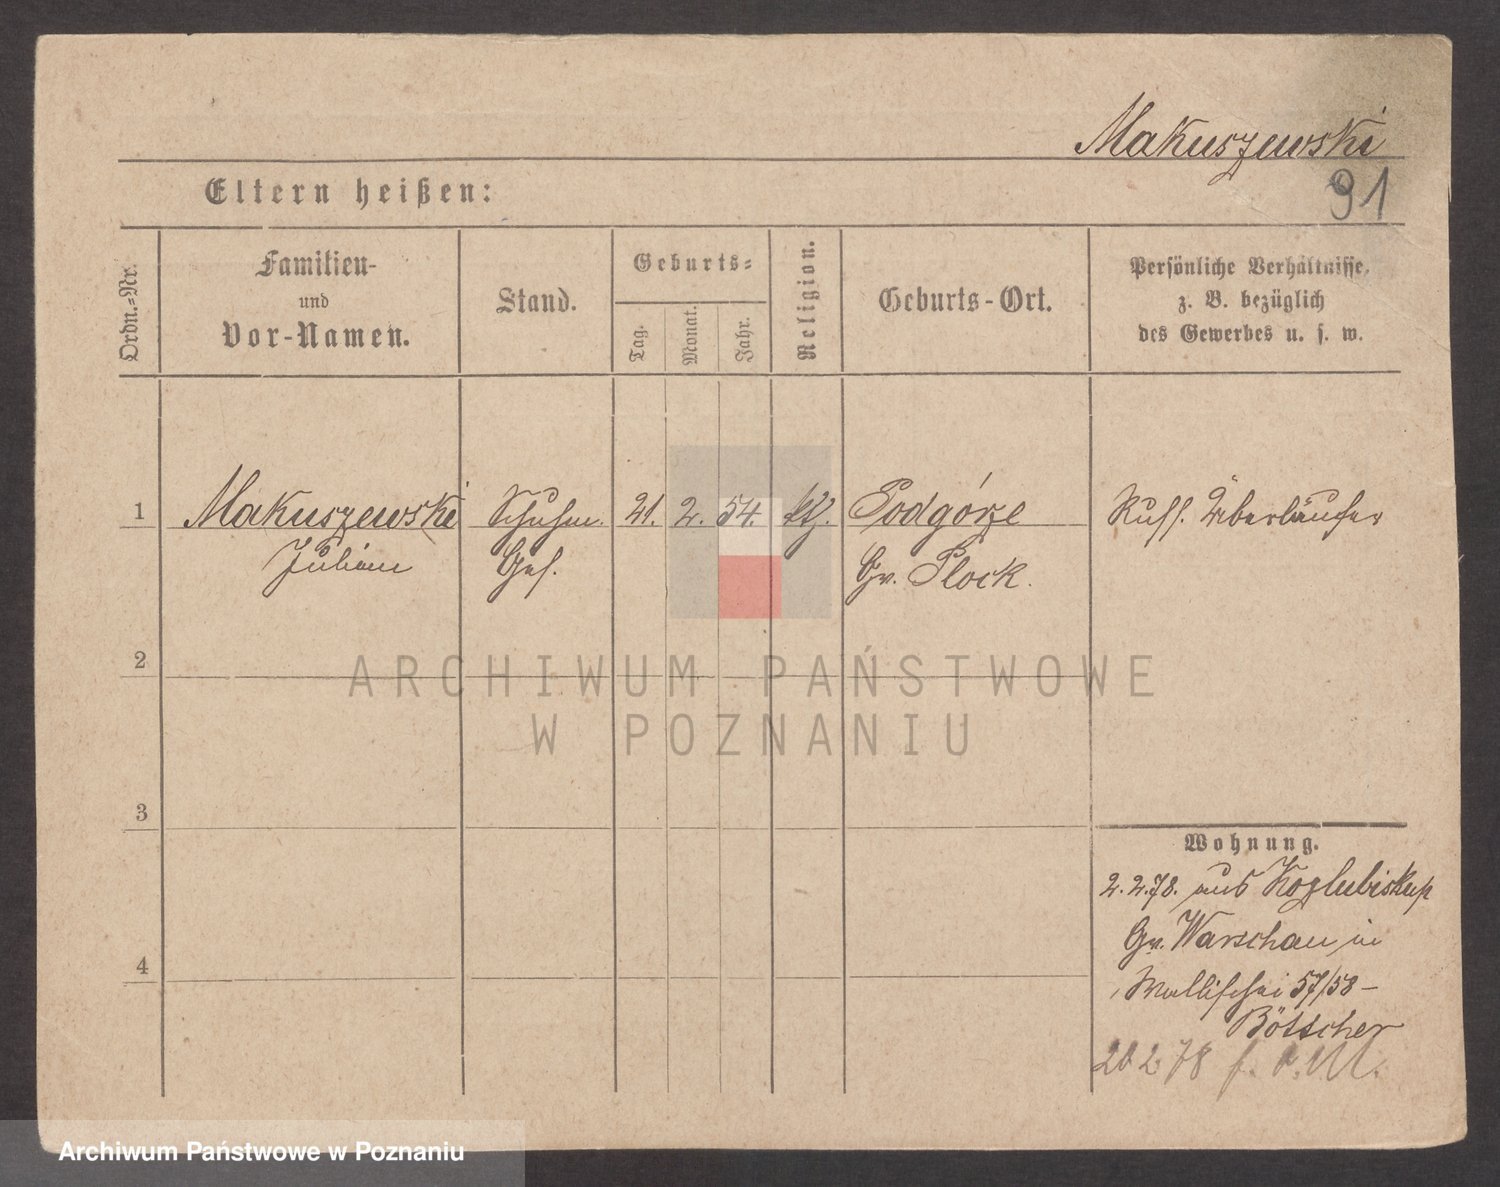 Makuszewski
91
Eltern heißen:
Ordn.-Nr.
Familien-
und
Vor-Namen.
Stand.
Geburts-
Tag.
Monat.
Jahr.
Religion.
Geburts-Ort.
Persönliche Verhältnisse,
z. B. bezüglich
des Gewerbes u. s. w.
1 Makuszewski Schuhm. 21. 2. 54. kth. Podgórze Russ. Überläufer
Julian Ges. Gv. Plock.
2
3
4
Wohnung.
2.2.78. aus Kozlubiskup
Gv. Warschau in
Wallischei 57/58 –
Böttcher
20 2 78
ARCHIWUM PAŃSTWOWE
W POZNANIU
Archiwum Państwowe w Poznaniu